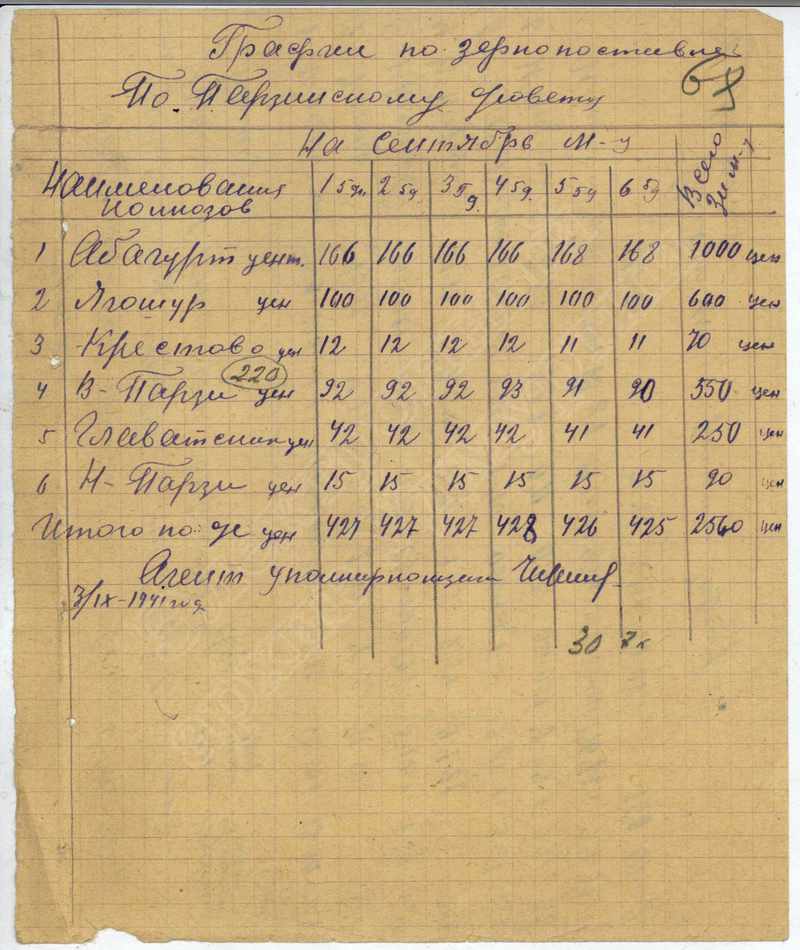 График по зернопоставке
68
По Парзинскому с/совету
На Сентябрь м-ц
Наименования колхозов 1 5 дн. 2 5д 3 5д. 4 5д. 5 5д 6 5д Всего за м-ц
1 Абагурт цент. 166 166 166 166 168 168 1000 цен
2 Ягошур цен 100 100 100 100 100 100 600 цен
3 Крестово цен 12 12 12 12 11 11 70 цен
220
4 В-Парзи цен 92 92 92 93 91 90 550 цен
5 Главатских цен 42 42 42 42 41 41 250 цен
6 Н-Парзи цен 15 15 15 15 15 15 90 цен
Итого по с/с цен 427 427 427 428 426 425 2560 цен
Агент
3/IX-1941 год
30 7к